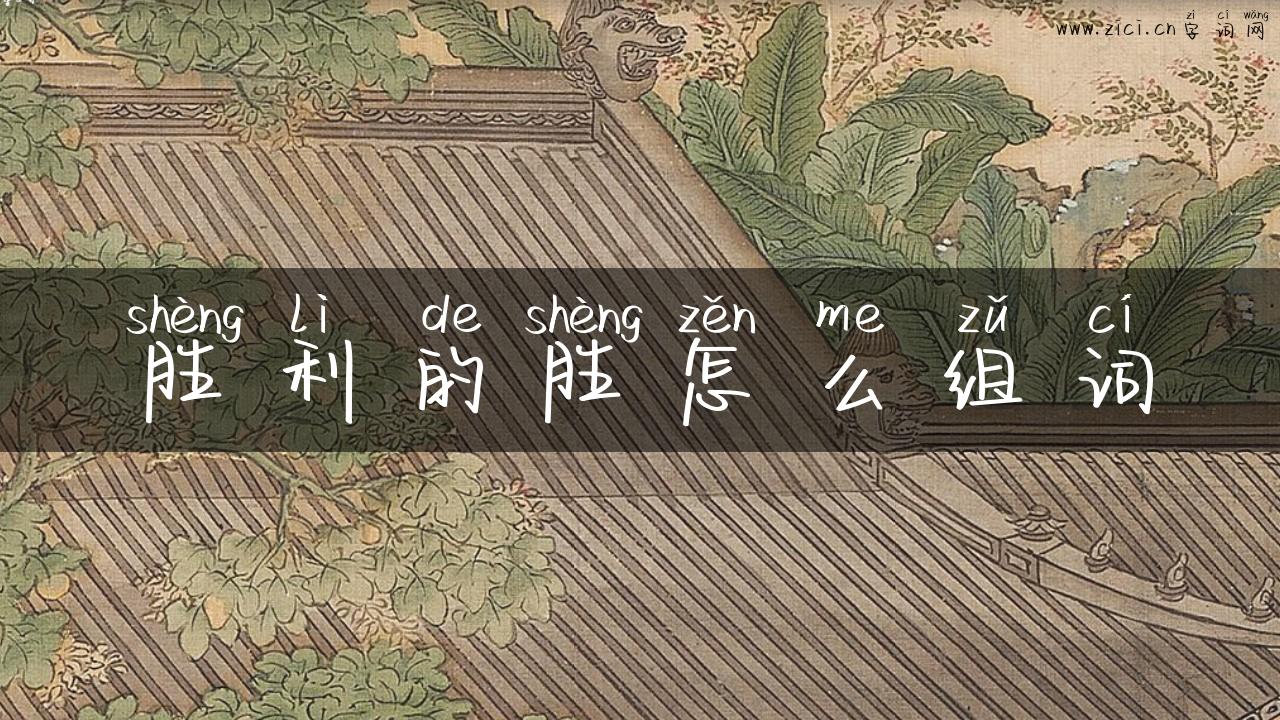 zì cí wǎng
www.zici.cn 字词网
shèng lì de shèng zěn me zǔ cí
胜利的胜怎么组词